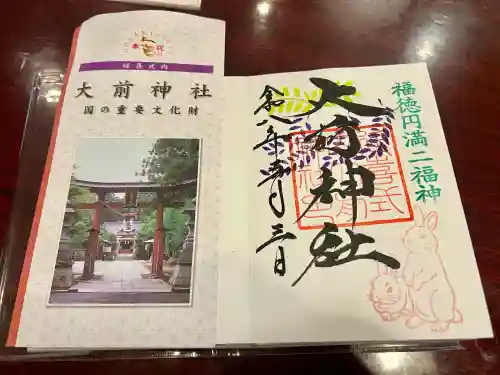 延喜式内
大前神社
国の重要文化財
福徳円満二福神
大前神社
令八年五月三日